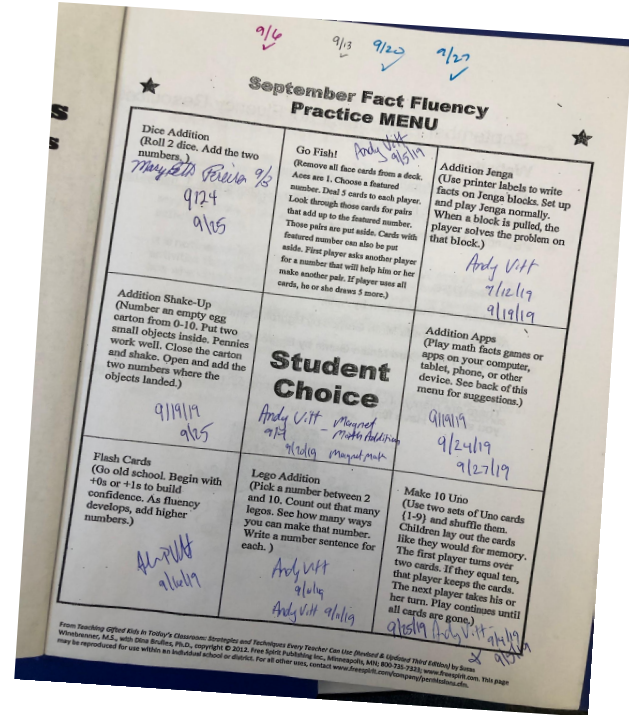 9/6
9/13
9/20
9/27
September Fact Fluency
Practice MENU
Dice Addition
(Roll 2 dice. Add the two
numbers.)
9/3
9/24
9/25
Go Fish!
Andy Vitt
9/5/19
(Remove all face cards from a deck.
Aces are 1. Choose a featured
number. Deal 5 cards to each player.
Look through those cards for pairs
that add up to the featured number.
Those pairs are put aside. Cards with
featured number can also be put
aside. First player asks another player
for a number that will help him or her
make another pair. If player uses all
cards, he or she draws 5 more.)
Addition Jenga
(Use printer labels to write
facts on Jenga blocks. Set up
and play Jenga normally.
When a block is pulled, the
player solves the problem on
that block.)
Andy Vitt
9/12/19
9/19/19
Addition Shake-Up
(Number an empty egg
carton from 0-10. Put two
small objects inside. Pennies
work well. Close the carton
and shake. Open and add the
two numbers where the
objects landed.)
9/19/19
9/25
Student
Choice
Andy Vitt - Magnet
Math Addition
Magnet Math
Addition Apps
(Play math facts games or
apps on your computer,
tablet, phone, or other
device. See back of this
menu for suggestions.)
9/19/19
9/24/19
9/27/19
Flash Cards
(Go old school. Begin with
+0s or +1s to build
confidence. As fluency
develops, add higher
numbers.)
Lego Addition
(Pick a number between 2
and 10. Count out that many
legos. See how many ways
you can make that number.
Write a number sentence for
each. )
Andy Vitt
Andy Vitt 9/11/19
Make 10 Uno
(Use two sets of Uno cards
{1-9} and shuffle them.
Children lay out the cards
like they would for memory.
The first player turns over
two cards. If they equal ten,
that player keeps the cards.
The next player takes his or
her turn. Play continues until
all cards are gone.)
9/25/19 Andy Vitt
From Teaching Gifted Kids in Today's Classroom: Strategies and Techniques Every Teacher Can Use (Revised & Updated Third Edition) by Susan
Winebrenner, M.S., with Dina Brulles, Ph.D., copyright © 2012. Free Spirit Publishing Inc., Minneapolis, MN; 800-735-7323; www.freespirit.com. This page
may be reproduced for use within an individual school or district. For all other uses, contact www.freespirit.com/company/permissions.cfm.